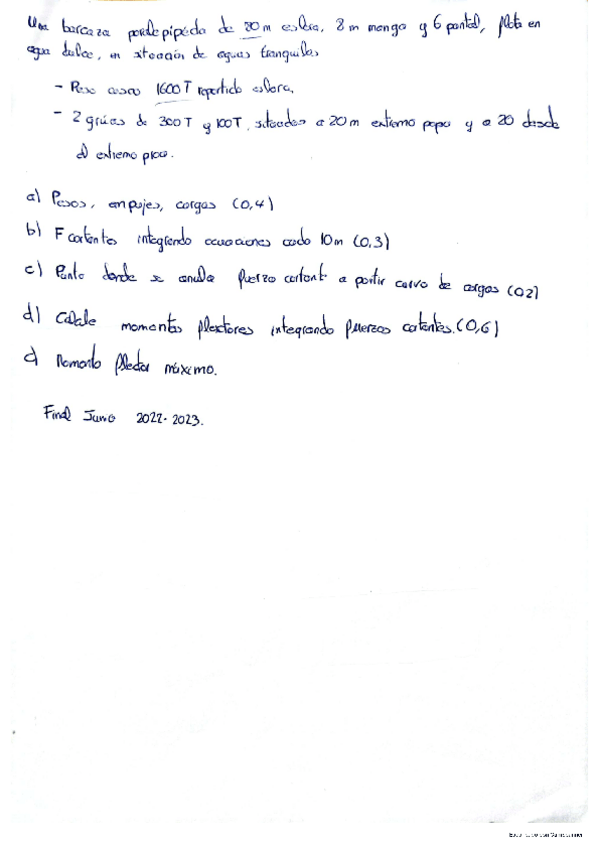 Una barcaza paralepipéda de 80 m eslora, 8 m manga y 6 puntal, flota en
agua dulce, en situación de aguas tranquilas
- Peso casco 1600T repartido eslora.
- 2 grúas de 300T y 100T, situadas a 20m extremo popa y a 20 desde
el extremo proa.
a) Pesos, empujes, cargas (0,4)
b) F cortantes integrando ecuaciones cada 10m (0,3)
c) Punto donde se anula fuerza cortante a partir curva de cargas (0,2)
d) Calcule momentos flectores integrando fuerzas cortantes. (0,6)
e) Momento flector máximo.
Final Junio 2022-2023.